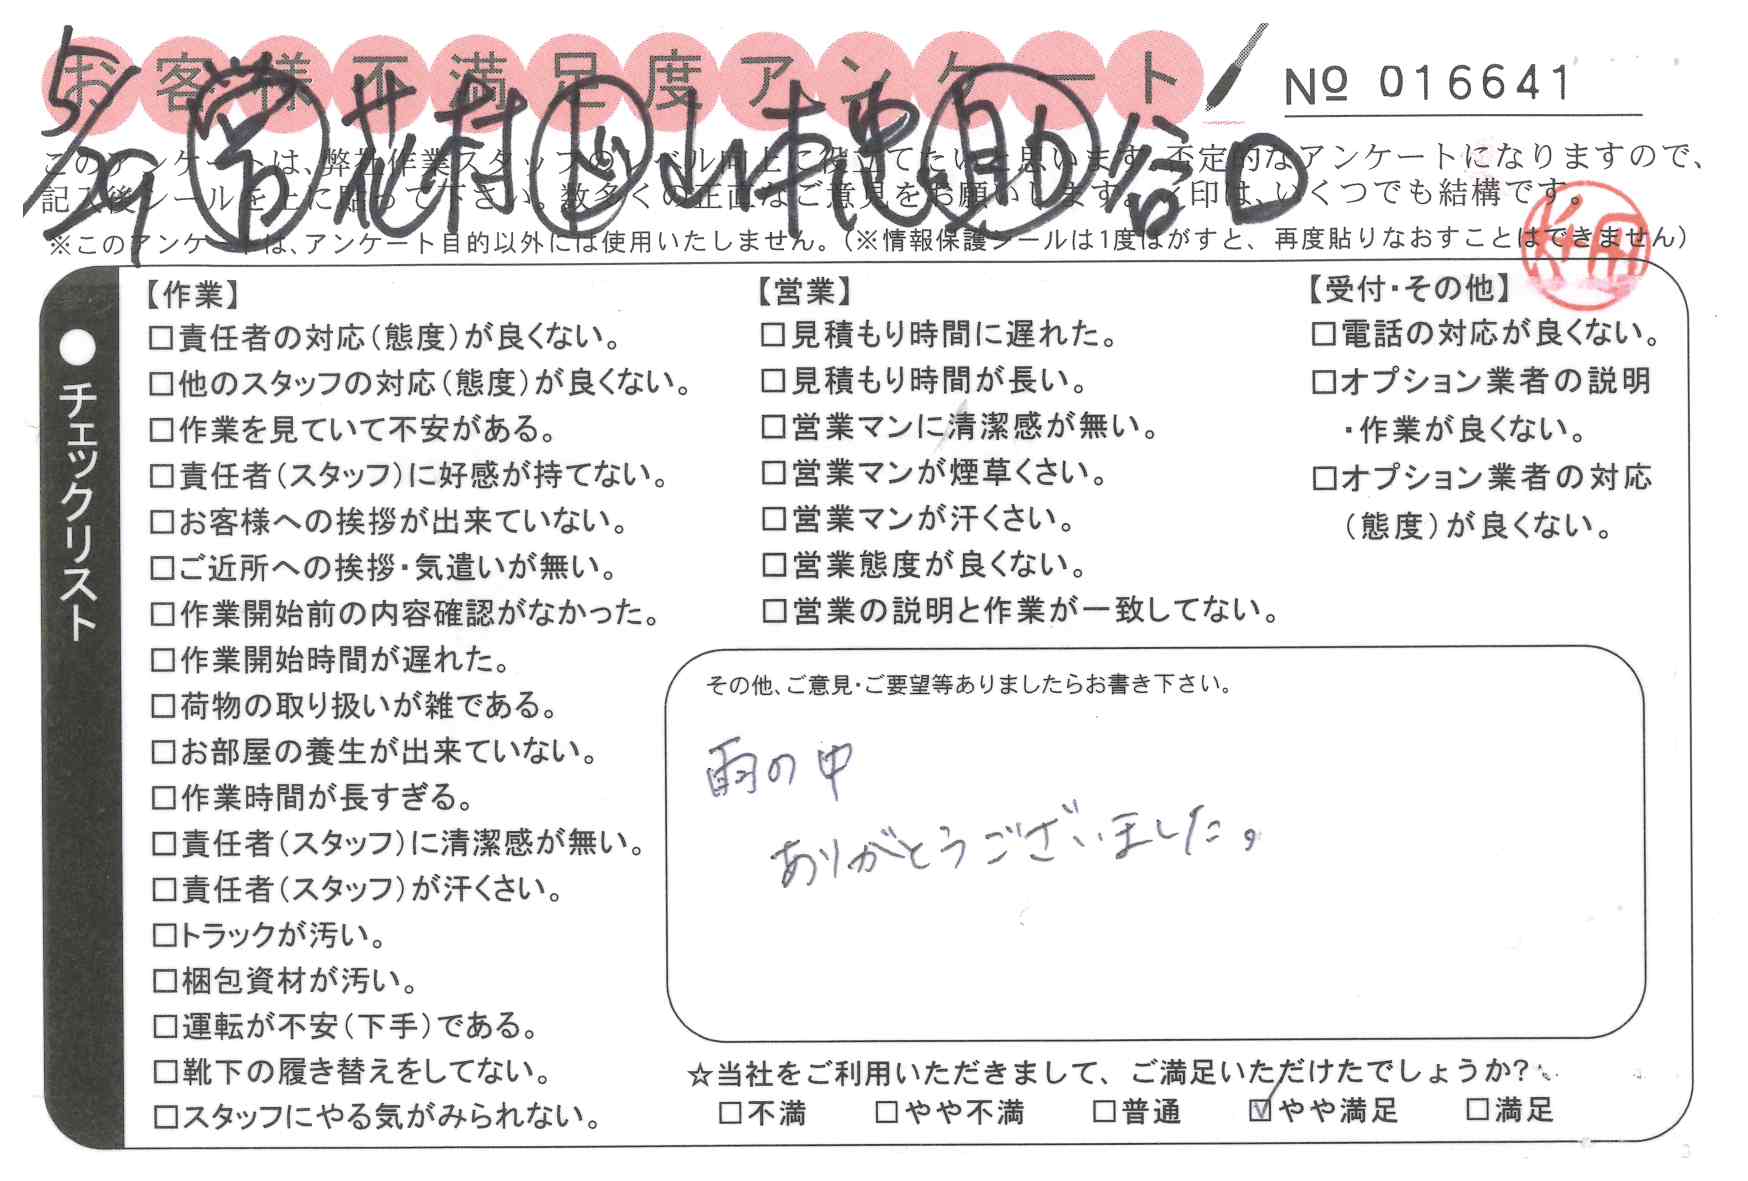 お客様不満足度アンケート
№ 016641
5/29 営 花村 ド 山本 助 谷口
このアンケートは、弊社作業スタッフのレベル向上に役立てたいと思います。不定的なアンケートになりますので、
記入後シールを上に貼って下さい。数多くの正直なご意見をお願いします。✓印は、いくつでも結構です。
※このアンケートは、アンケート目的以外には使用いたしません。(※情報保護シールは1度はがすと、再度貼りなおすことはできません)
●チェックリスト
【作業】
□責任者の対応(態度)が良くない。
□他のスタッフの対応(態度)が良くない。
□作業を見ていて不安がある。
□責任者(スタッフ)に好感が持てない。
□お客様への挨拶が出来ていない。
□ご近所への挨拶・気遣いが無い。
□作業開始前の内容確認がなかった。
□作業開始時間が遅れた。
□荷物の取り扱いが雑である。
□お部屋の養生が出来ていない。
□作業時間が長すぎる。
□責任者(スタッフ)に清潔感が無い。
□責任者(スタッフ)が汗くさい。
□トラックが汚い。
□梱包資材が汚い。
□運転が不安(下手)である。
□靴下の履き替えをしてない。
□スタッフにやる気がみられない。
【営業】
□見積もり時間に遅れた。
□見積もり時間が長い。
□営業マンに清潔感が無い。
□営業マンが煙草くさい。
□営業マンが汗くさい。
□営業態度が良くない。
□営業の説明と作業が一致してない。
【受付・その他】
□電話の対応が良くない。
□オプション業者の説明
・作業が良くない。
□オプション業者の対応
(態度)が良くない。
その他、ご意見・ご要望等ありましたらお書き下さい。
雨の中
ありがとうございました。
☆当社をご利用いただきまして、ご満足いただけたでしょうか?
□不満 □やや不満 □普通 ☑やや満足 □満足